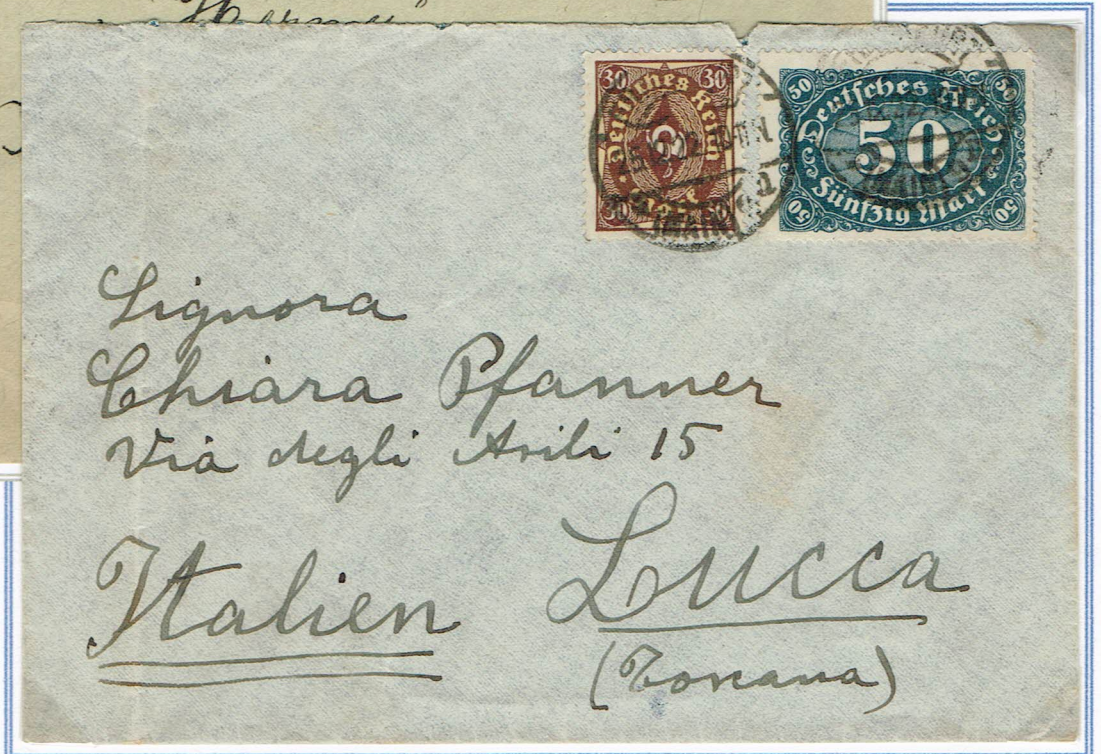 30 30
Deutsches Reich
Mark
30 30
50 50
Deutsches Reich
50
Fünfzig Mark
50 50
Signora
Chiara Pfanner
Via degli Asili 15
Italien Lucca
(Toscana)